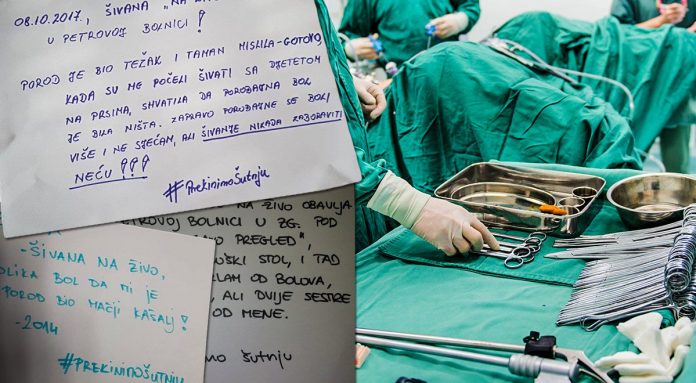 08.10.2017., ŠIVANA "NA
U PETROVOJ BOLNICI!
POROD JE BIO TEŽAK I TAMAN MISLILA-GOTOVO,
KADA SU ME POČELI ŠIVATI SA DJETETOM
NA PRSIMA, SHVATILA DA POROĐAJNA BOL
JE BILA NIŠTA. ZAPRAVO POROĐAJNE SE BOLI
VIŠE I NE SJEĆAM, ALI ŠIVANJE NIKADA ZABORAVITI
NEĆU!!!
#PREKINIMOŠUTNJU
NA ŽIVO OBAVLJA
TROVOJ BOLNICI U ZG. POD
PREGLED",
ŠKI STOL, I TAD
LAM OD BOLOVA,
, ALI DVIJE SESTRE
OD MENE.
MO ŠUTNJU
-ŠIVANA NA ŽIVO,
OLIKA BOL DA MI JE
POROD BIO MAČJI KAŠALJ!
-2014
#PREKINIMOŠUTNJU